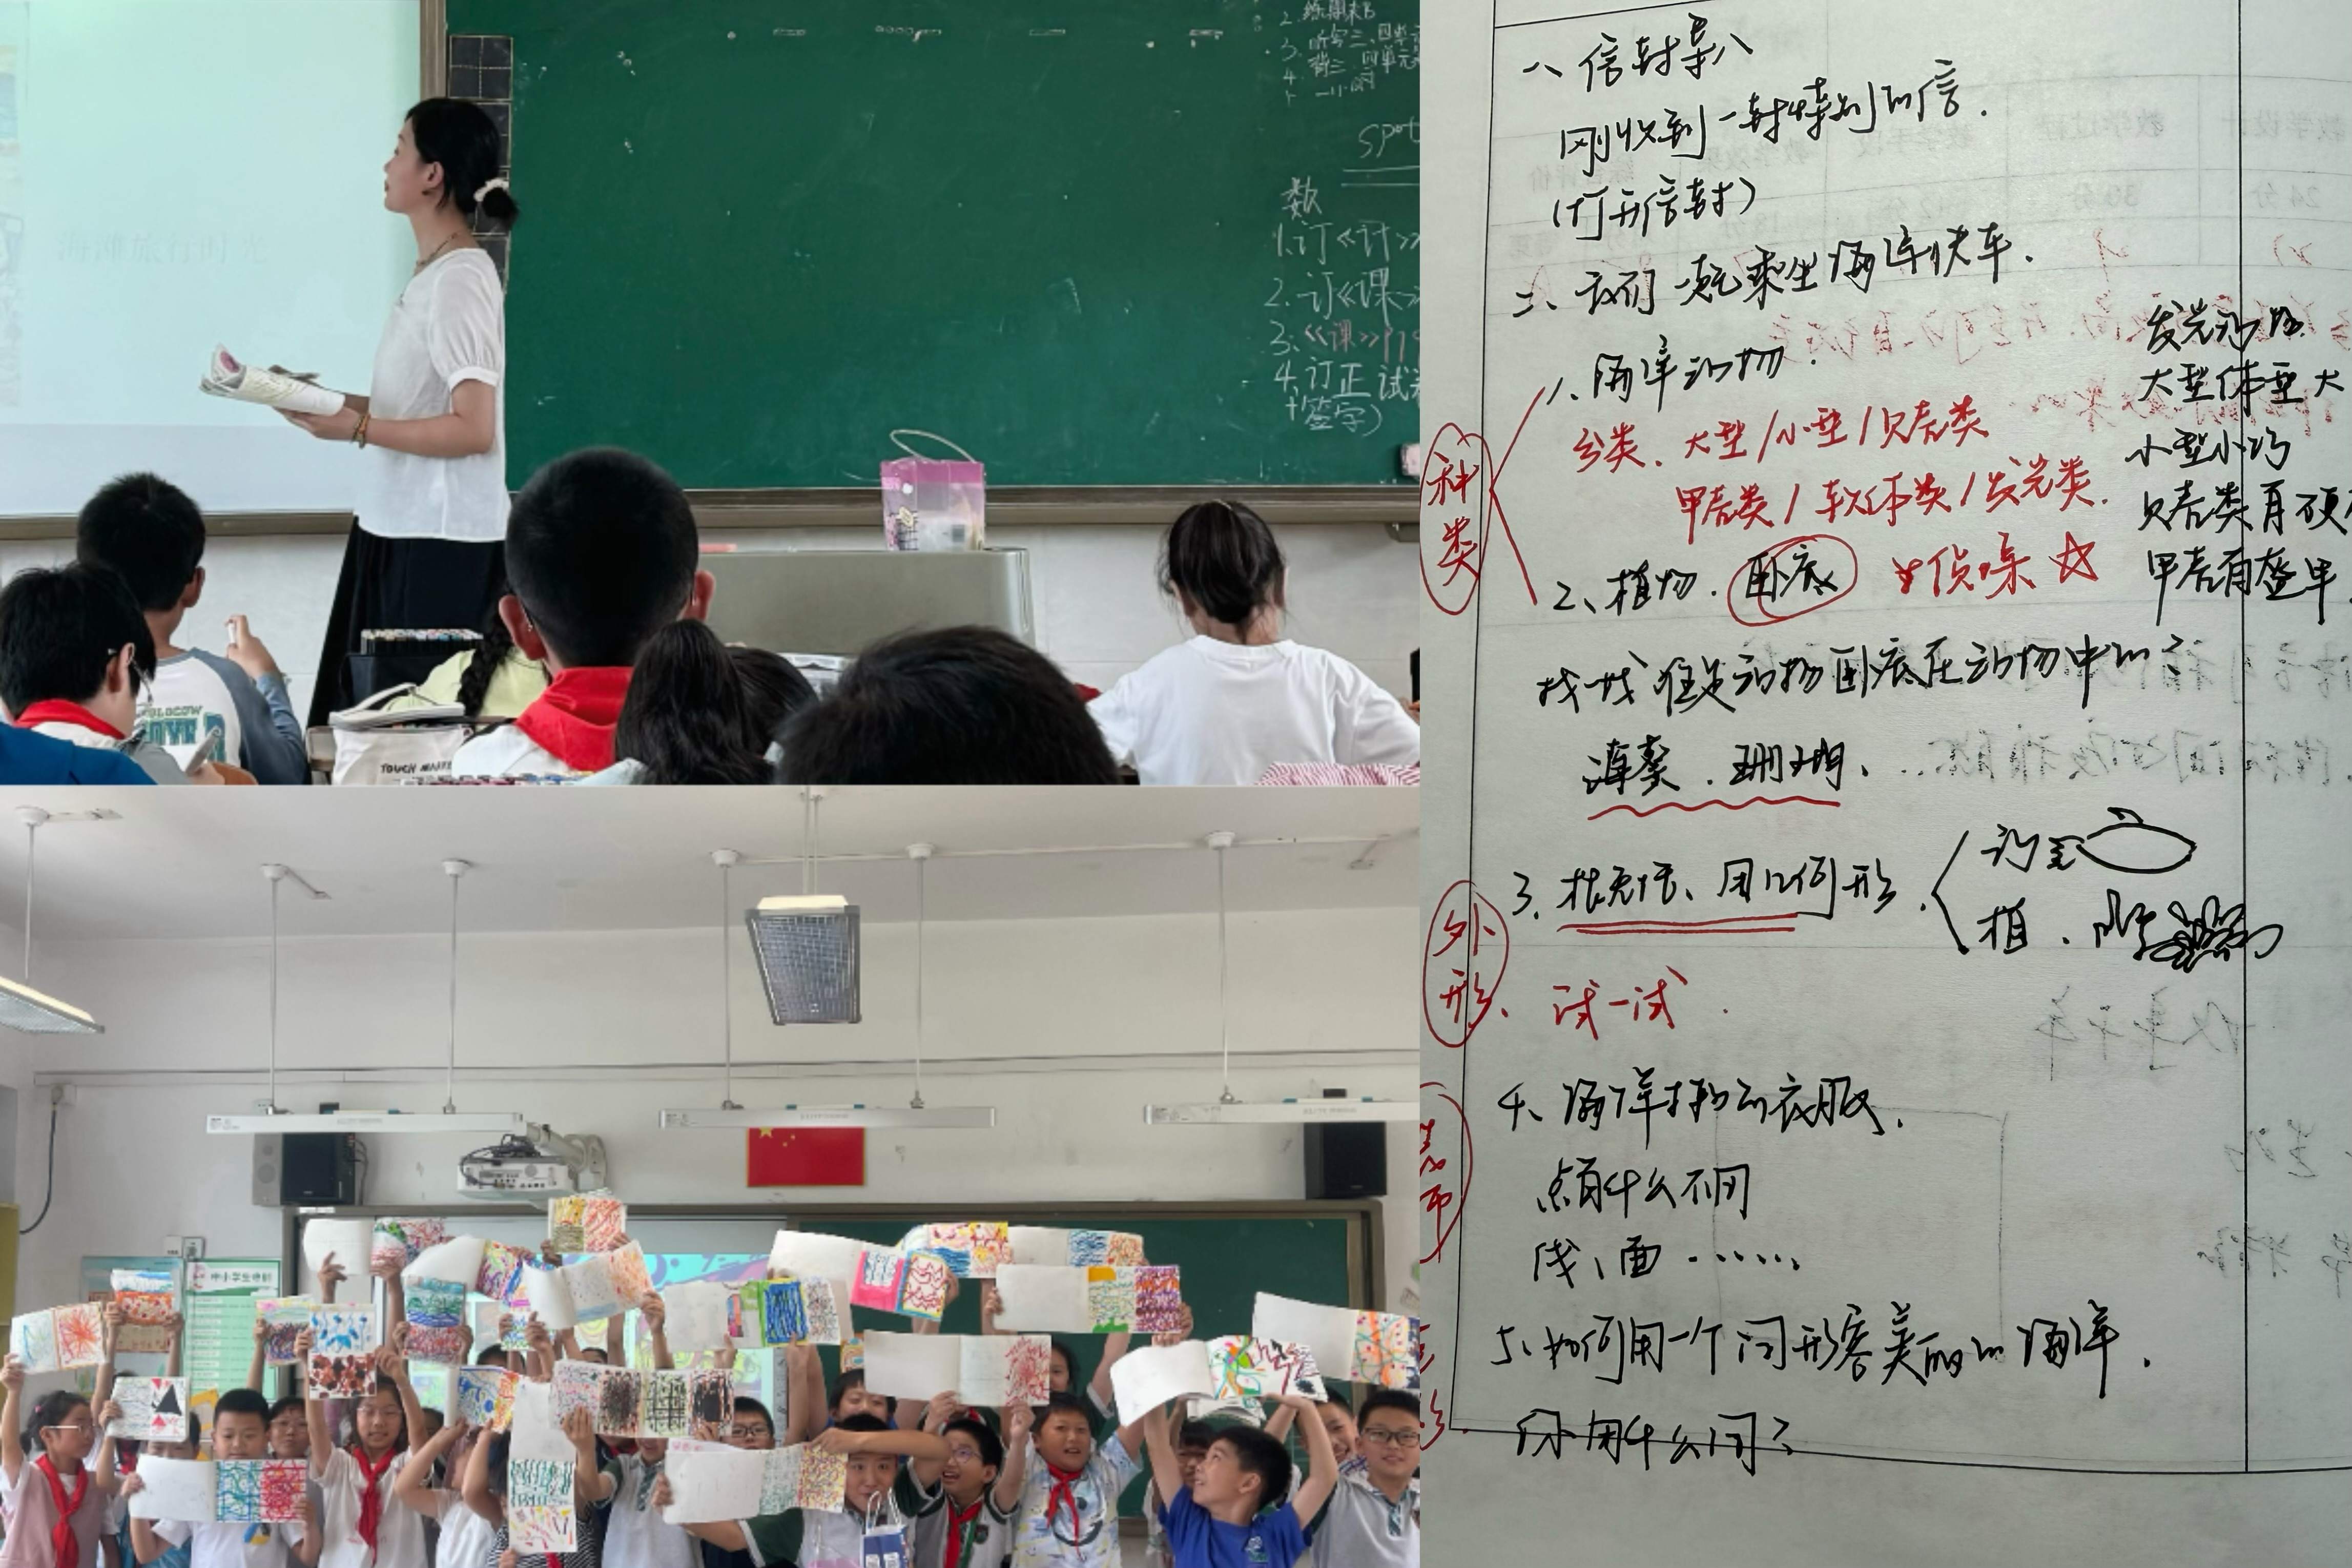 海滩旅行时光
2.练周末B
3.听写三、四单
背三、四单元
4.
spot
数
1.订《计》
2.订《课》
3.《课》P19
4.订正试
(签字)
TOUCH MARK
中小学生守则
一、信封导入
刚收到一封特别的信.
(打开信封)
二、我们一起乘坐海洋快车.
种类
1、海洋动物.
分类、大型/小型/贝壳类
甲壳类/软体类/发光类.
发光
大型体型大
小型小巧
贝壳类有硬
甲壳有盔甲
2、植物.卧底 侦探
找一找谁是动物卧底在动物中的?
海葵.珊瑚、
外形
3、找方法、用几何形.
动
植.
试一试
4、海洋动衣服.
点有什么不同
线、面......
5、如何用一个词形容美丽的海洋.
你用什么词?